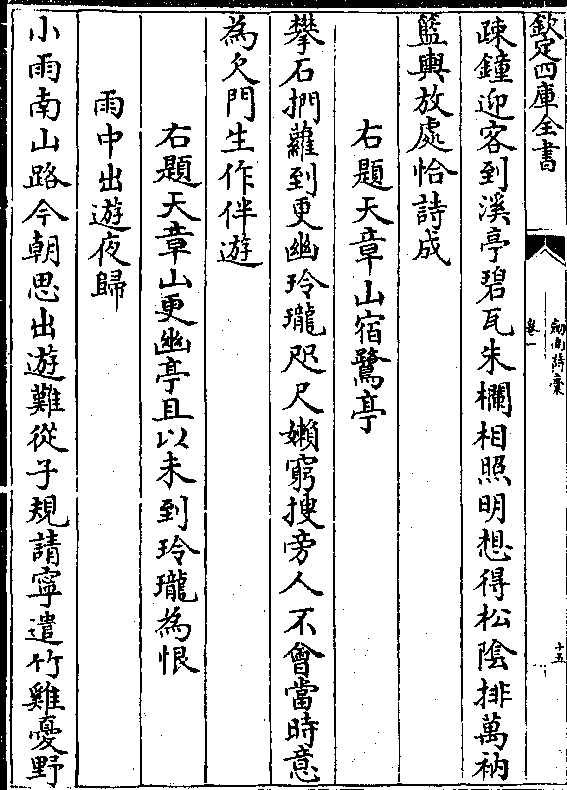 欽定四庫全書
劒南詩稾
卷一
十五
疎鐘迎客到溪亭碧瓦朱欄相照明想得松隂排萬衲
籃輿放處恰詩成
右題天章山宿鷺亭
攀石捫蘿到更幽玲瓏咫尺嬾窮搜旁人不會當時意
為欠門生作伴遊
右題天章山更幽亭且以未到玲瓏為恨
雨中出遊夜歸
小雨南山路今朝思出遊難從子規請寧遣竹雞憂野